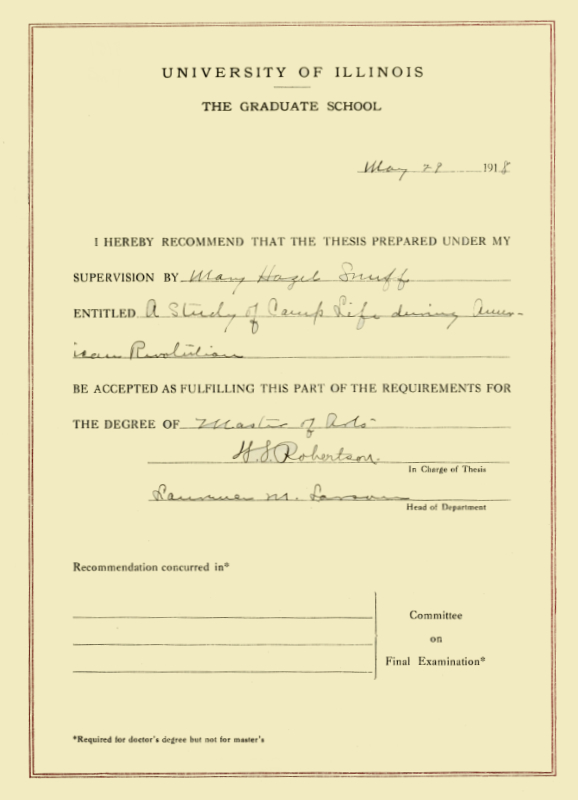 UNIVERSITY OF ILLINOIS
THE GRADUATE SCHOOL
May 29 1918
I HEREBY RECOMMEND THAT THE THESIS PREPARED UNDER MY
SUPERVISION BY Mary Hazel Snuff
ENTITLED A Study of Camp Life during Amer-
ican Revolution
BE ACCEPTED AS FULFILLING THIS PART OF THE REQUIREMENTS FOR
THE DEGREE OF Master of Arts
H.S. Robertson.
In Charge of Thesis
Laurence M. Larson
Head of Department
Recommendation concurred in*
Committee
on
Final Examination*
*Required for doctor's degree but not for master's